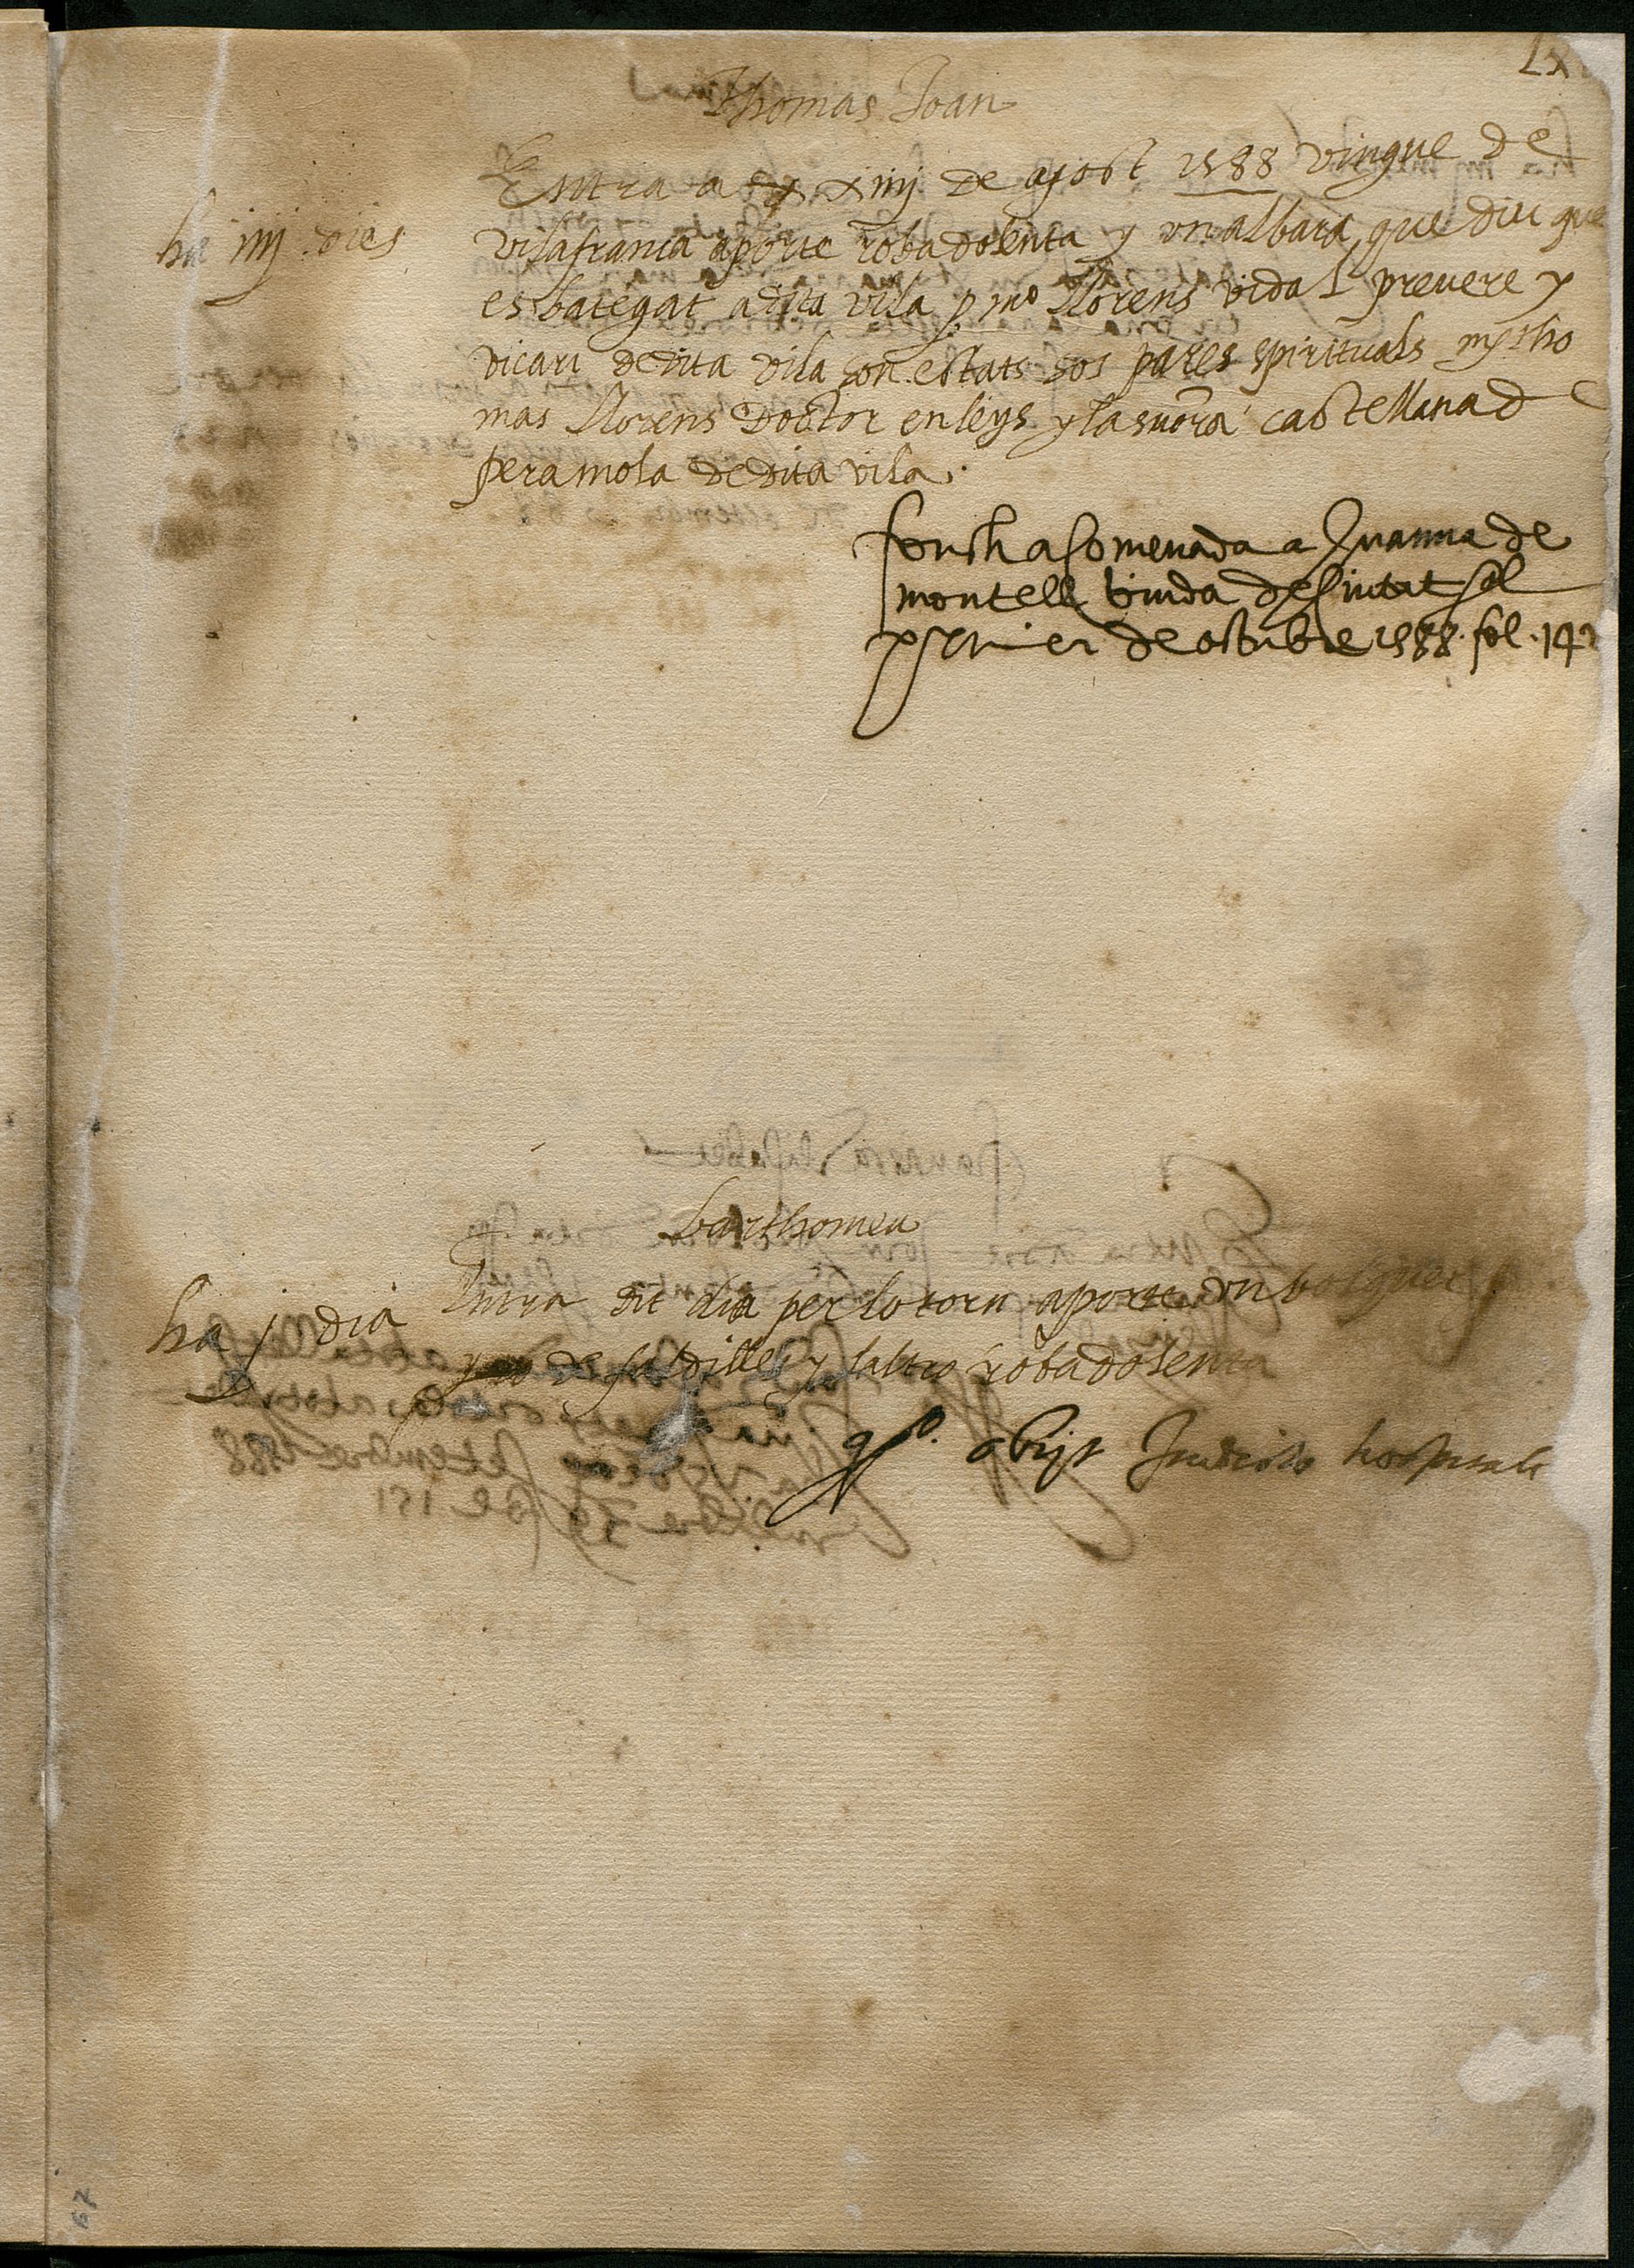 Lx
Thomas Joan
Entra a xiiij de agost 1588 vingue de
ha iiij dies
vilafranca aporte roba dolenta y un albara que diu que
es bategat a dita vila p mº llorens vidal prevere y
vicari de dita vila son estats sos pares spirituals mº tho
mas llorens doctor en leys y la snora castellana d
peramola de dita vila.
fonch acomenada a Juanna de
montell viuda de
primer de octubre 1588 fol. 142
barthomeu
ha j dia
Entra dit dia per lo torn aporte un bolquer
de faldilles y laltro roba dolenta
obijt In dicto hospitali
67